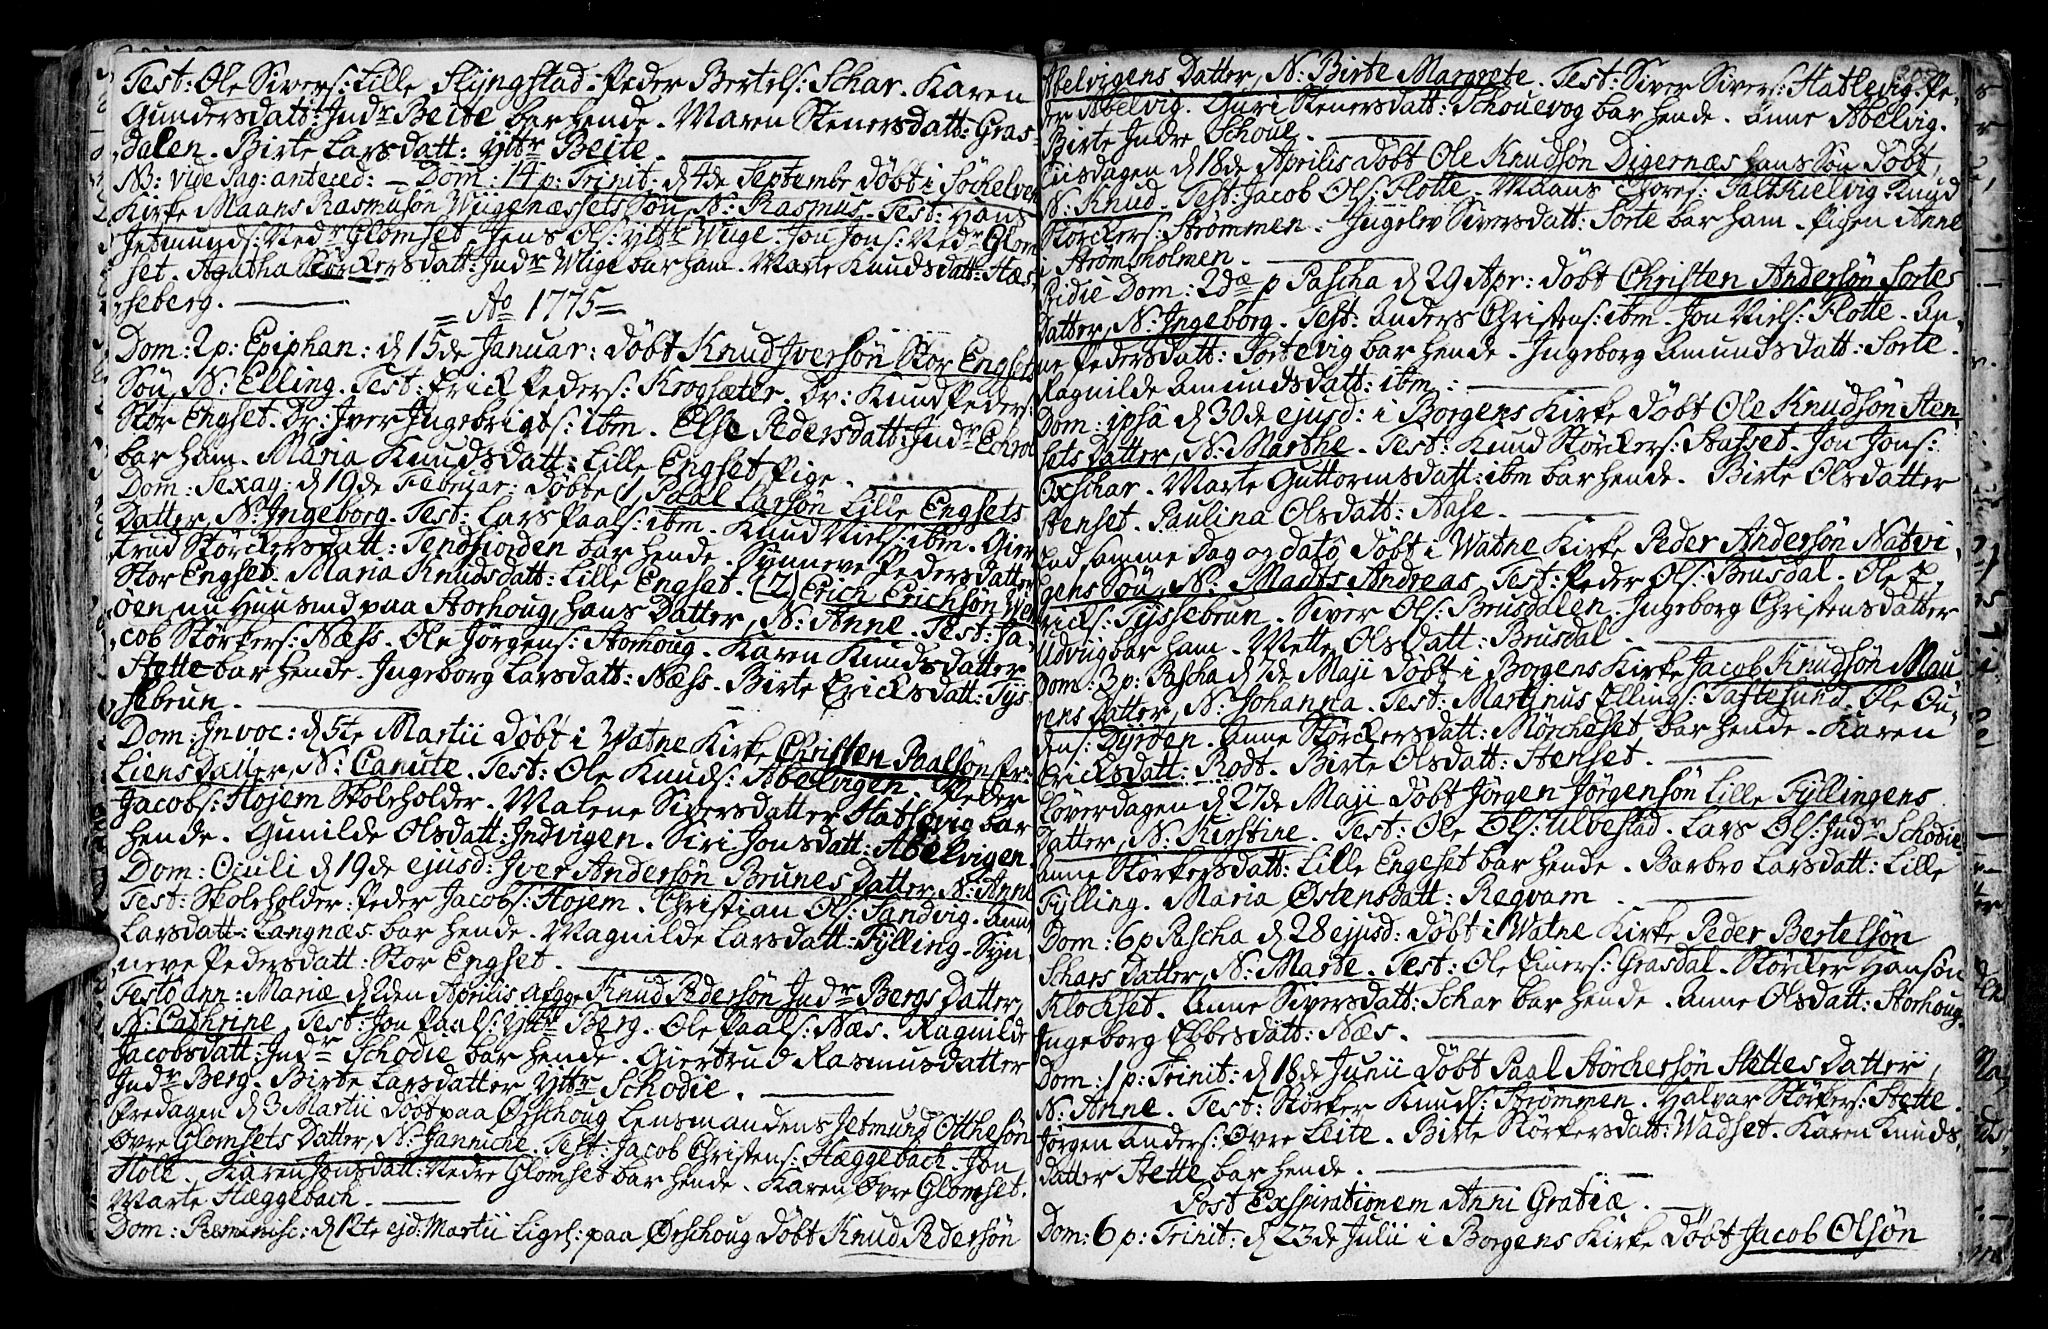 Test: Ole Sivers: Lille Slyngstad. Peder Bertels: Schar. Karen
Gundersdatt: Indr Beite bar hende. Maren Stenersdatt: Gras-
dalen. Birte Larsdatt: Yttr Beite.
NB: vide Pag: antered: — Dom: 14 p: Trinit: d 4de Septembr döbt i Söchelven
Kirke Maans Rasmusön Wugenæssets Sön, N: Rasmus. Test: Hans
Jetmunds: Nedr Glomset. Jens Ols: Yttr Wuge. Jon Jons: Nedr Glom
set. Agatha Störckersdatt: Indr Wuge bar ham. Marte Knudsdatt: Hæs
seberg.
= Ao 1775 =
Dom: 2 p: Epiphan: d 15de Januar: döbt Knud Iversön Stor Engsets
Sön, N: Elling. Test: Erick Peders: Krogsæter. Dr: Knud Peders:
Stor Engset. Dr: Iver Ingebrigts: ibm. Else Pedersdatt: Indr Echrol
bar ham. Maria Knudsdatt: Lille Engset Pige.
Dom: Sexag: d 19de Februar: döbte 1, Paal Larsön Lille Engsets
Datter, N: Ingeborg. Test: Lars Paals: ibm. Knud Niels: ibm. Gier
trud Störckersdatt: Tendfiorden bar hende. Synneve Pedersdatter
Stor Engset. Maria Knudsdatt: Lille Engset. (2) Erich Erichsön Wen
öen nu Huusmd paa Storhoug, hans Datter, N: Anne. Test: Ja-
cob Störkers: Næss. Ole Jörgens: Storhoug. Karen Knudsdatter
Stette bar hende. Ingeborg Larsdatt: Næss. Birte Ericksdatt: Tys
sebrun.
Dom: Invoc: d 5te Martii döbt i Watne Kirke Christen Paalsön Er:
Liens Datter, N: Canute. Test: Ole Knuds: Abelvigen. Peder
Jacobs: Hojem Skoleholder. Malene Siversdatter Hatlevig bar
hende. Gunilde Olsdatt: Indvigen. Siri Jonsdatt: Abelvigen.
Dom: Oculi d 19de ejusd: Iver Andersön Brunes Datter, N: Anne
Test: Skoleholder Peder Jacobs: Hojem. Christian Ols: Sandvig. Anne
Larsdatt: Langnæs bar hende. Magnilde Larsdatt: Fylling. Syn
neve Pedersdatt: Stor Engset.
Festo ann: Mariæ d 2den Aprilis afgge Knud Pedersön Indr Bergs Datter,
N: Cathrine. Test: Jon Paals: Yttr Berg. Ole Paals: Næs. Ragnilde
Jacobsdatt: Indr Schodie bar hende. Giertrud Rasmusdatter
Indr Berg. Birte Larsdatter Yttr Schodie.
Fredagen d 3 Martii döbt paa Örschoug Lensmandens Jetmund Otthesön
Övre Glomsets Datter, N: Jannicke. Test: Jacob Christens: Hæggebach. Jon
Holt. Karen Jonsdatt: Nedre Glomset bar hende. Karen Övre Glomset.
Marte Hæggebach.
Dom: Reminisc: d 12te ejd: Martii Ligel: paa Örschoug döbt Knud Pedersön
Abelvigens Datter, N: Birte Margrete. Test: Siver Sivers: Hatlevig. Pe-
der Abelvig. Guri Stenersdatt: Schouevog bar hende. Anne Abelvig.
Birte Indre Schoue.
Tiisdagen d 18de Aprilis döbt Ole Knudsön Digernæs hans Sön döbt,
N: Knud. Test: Jacob Ols: Flotte. Maans Thores: Saltkielvig. Knud
Störckers: Strømmen. Ingelev Siversdatt: Sorte bar ham. Pigen Anne
i Strömsholmen.
Pridie Dom: 2da p Pascha d 29 Apr: döbt Christen Andersön Sortes
Datter, N: Ingeborg. Test: Anders Christens: ibm. Jon Niels: Flotte. An
ne Pedersdatt: Sortevig bar hende. Ingeborg Amundsdatt: Sorte.
Ragnilde Amundsdatt: ibm:
Dom: ipsa d 30de ejusd: i Borgens Kirke döbt Ole Knudsön Sten
sets Datter, N: Marthe. Test: Knud Störckers: Stasset. Jon Jons:
Oxschar. Marte Guttormsdatt: ibm bar hende. Birte Olsdatter
Stenset. Paulina Olsdatt: Aase.
End samme Dag og dato döbt i Watne Kirke Peder Andersön Natvi
gens Sön, N: Madts Andreas. Test: Peder Ols: Brusdal. Ole E-
ricks: Tyssebrun. Siver Ols: Brusdalen. Ingeborg Christensdatter
Udvug bar ham. Mette Olsdatt: Brusdal.
Dom: 3 p: Pascha d 7de Maji döbt i Borgens Kirke Jacob Knudsön Mau
gens Datter, N: Johanna. Test: Martinus Ellings: Taftesund. Ole Ou-
dens: Dyröen. Anne Störckersdatt: Störcheset bar hende. Karen
Ericksdatt: Rodt. Birte Olsdatt: Stenset.
Löverdagen d 27de Maji döbt Jörgen Jörgensön Lille Fyllingens
Datter, N: Kirstine. Test: Ole Ols: Ulvestad. Lars Ols: Indr Schodie.
Anne Störkersdatt: Lille Engeset bar hende. Barbro Larsdatt: Lille
Fylling. Maria Østensdatt: Regvam
Dom: 6 p Pascha d 28 ejusd: döbt i Watne Kirke Peder Bertelsön
Schars Datter, N: Marte. Test: Ole Einers: Grasdal. Störcker Hansön
Klockset. Anne Siversdatt: Schar bar hende. Anne Olsdatt: Storhoug.
Ingeborg Ebbesdatt: Næs.
Dom: 1 p: Trinit: d 18de Junii döbt Paal Störchersön Stettes Datter,
N: Anne. Test: Störker Knuds: Strömmen. Halvar Störkers: Stette.
Jörgen Anders: Övre Leite. Birte Störkersdatt: Wadset. Karen Knuds-
datter Stette bar hende.
Post Exspirationem Anni Gratiæ.
Dom: 6 p: Trinit: d 23de Julii i Borgens Kirke döbt Jacob Olsön